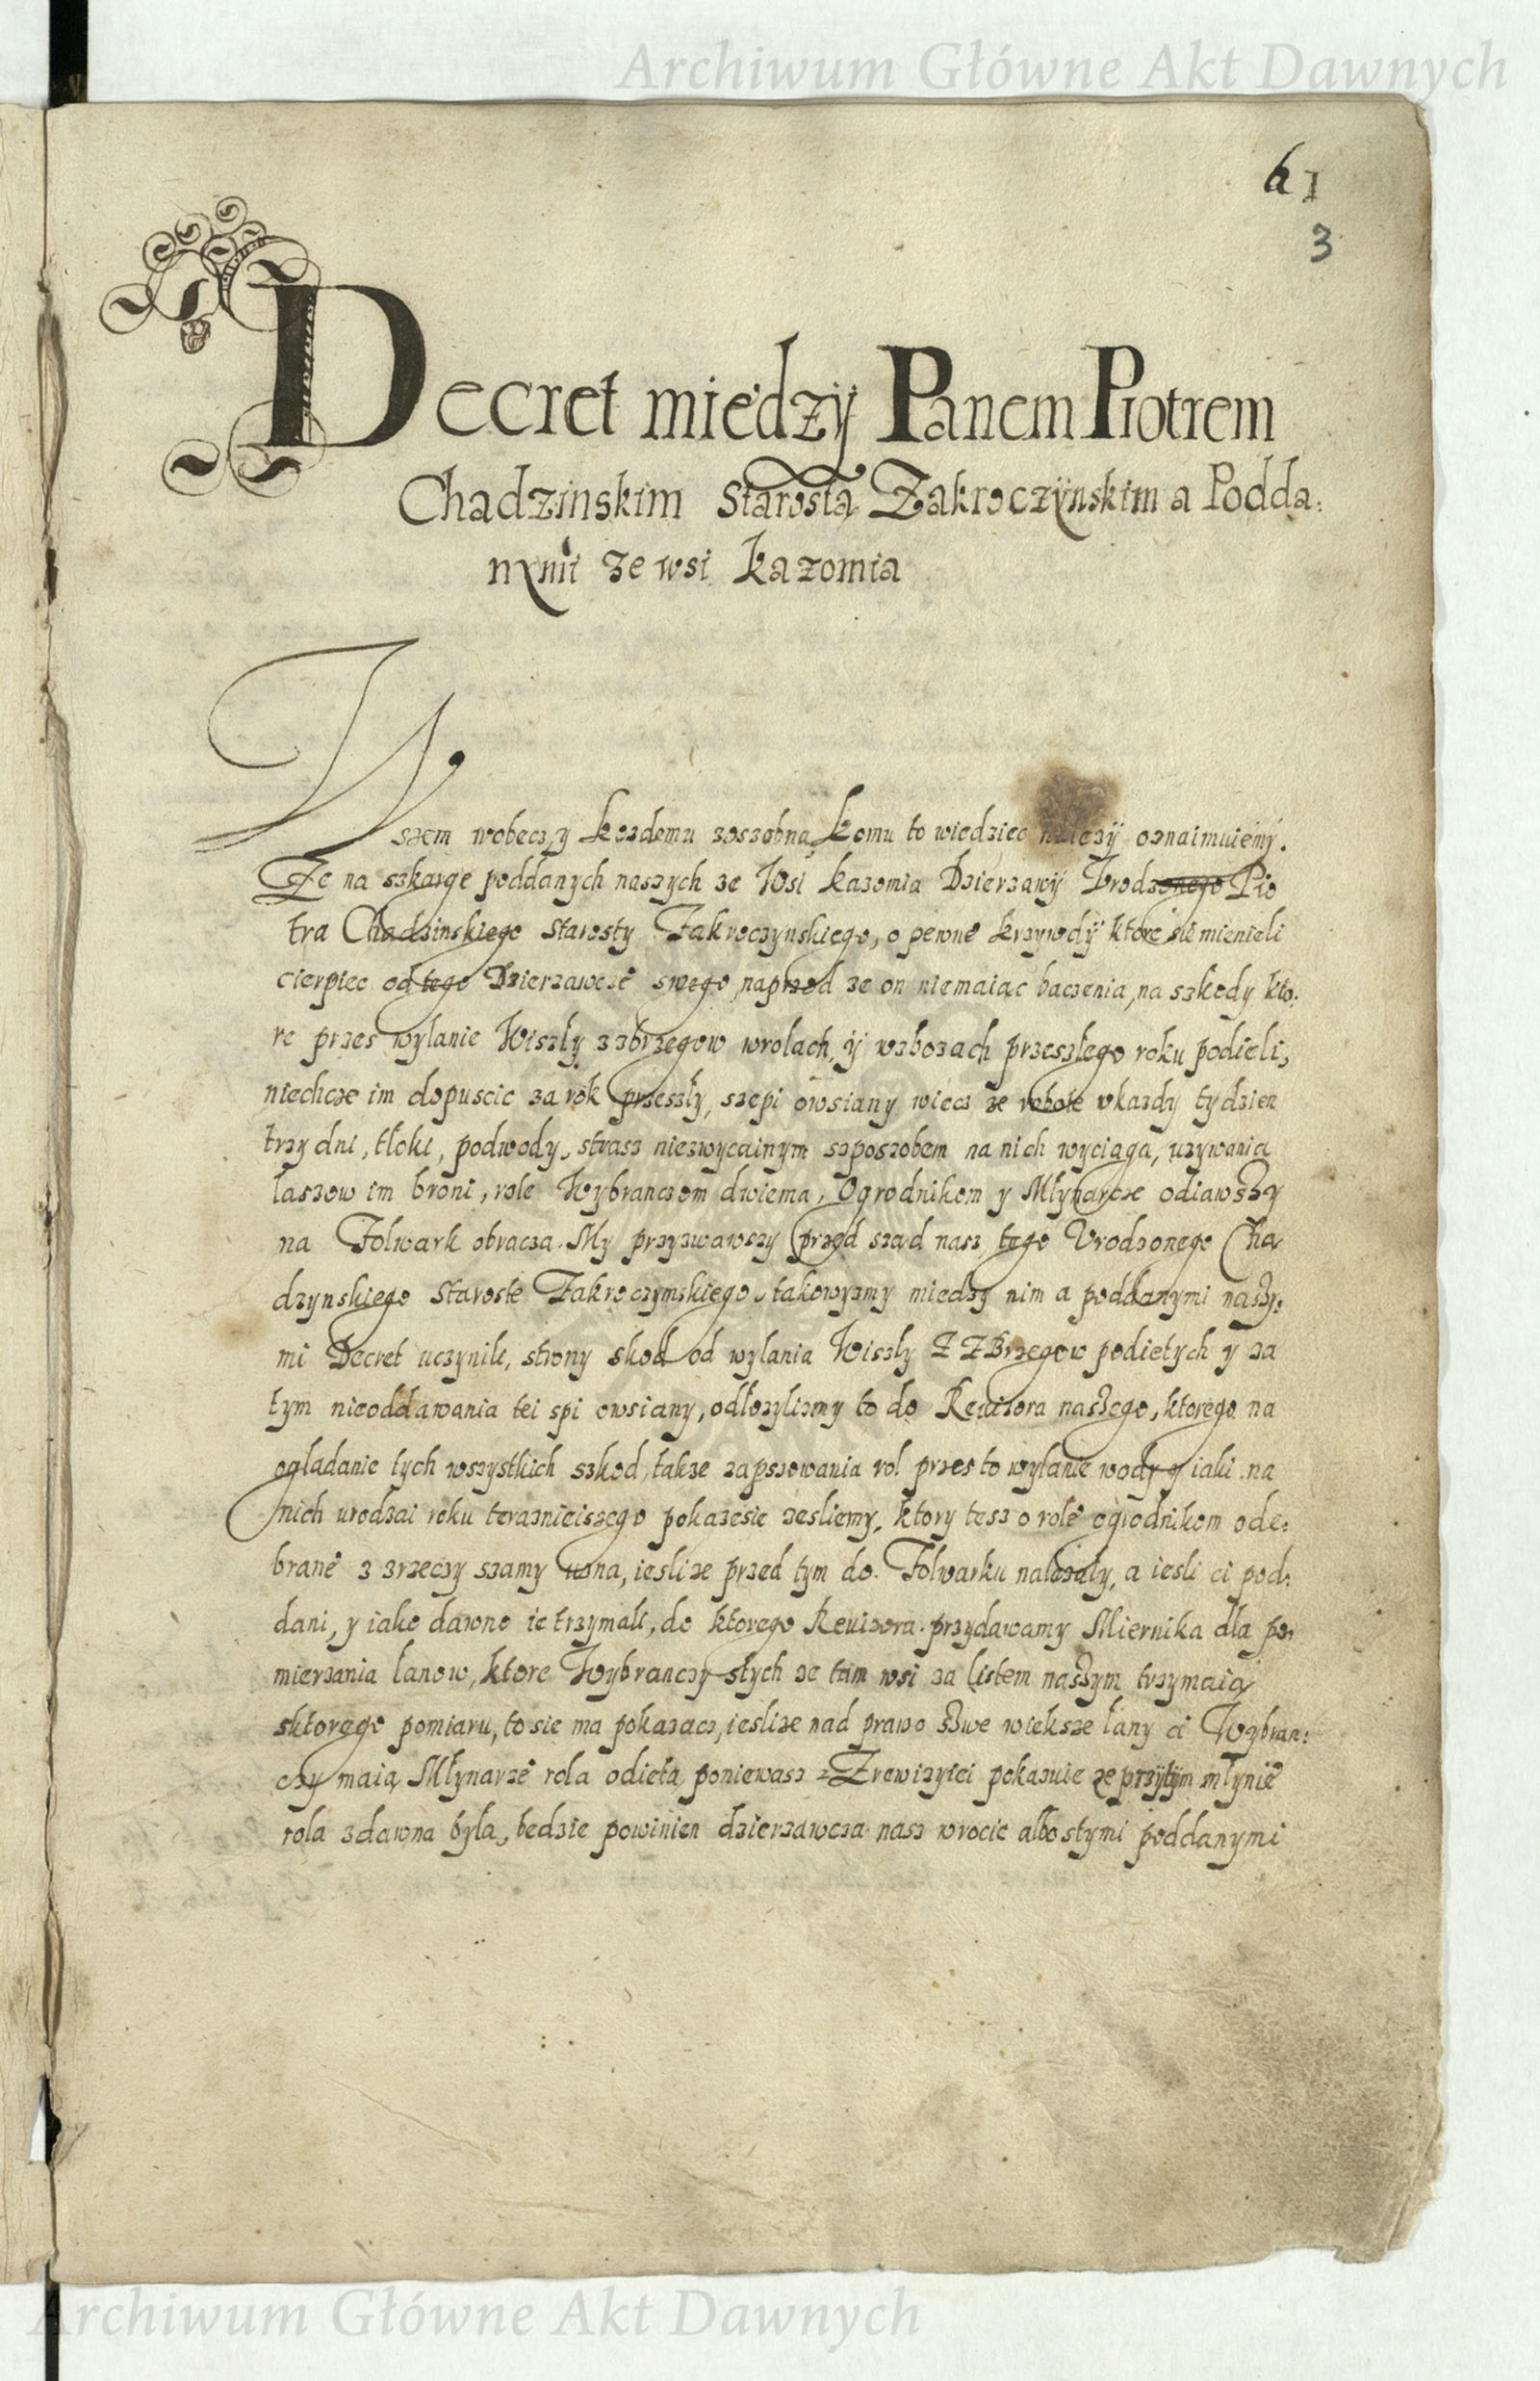 Archiwum Główne Akt Dawnych
61
3
Decret miedzÿ Panem Piotrem
Chadzinskim Starostą Zakroczÿnskim a Podda:
nymi ze wsi kazomia
Wszem wobecz, y kozdemu zoszobna, komu to wiedziec nalezÿ oznaimuiemÿ.
Ze na szkarge poddanych naszych ze Wsi kazomia Dzierzawÿ Vrodzonego Pio
tra Chadzinskiego Starosty Zakroczynskiego, o pewne krzywdÿ ktore sie mienieli
cierpiec od tego Dzierzawcze swego, naprzod ze on niemaiąc baczenia, na szkody kto:
re przes wylanie Wiszły zzbrzegow wrolach, ÿ wzbozach przeszłego roku podieli,
niechcze im dopuscic za rok przeszły, szepi owsiany, wiecz ze robote wkazdy tydzien
trzy dni, tłoki, podwody, strasz niezwycainym szposzobem na nich wyciąga, uzywania
laszow im broni, role Wybranczom dwiema, Ogrodnikom y Młynarcze odiawszy
na Folwark obracza. My przyzwawszy przed sząd nasz tego Vrodzonego Cha
dzynskiego Staroste Zakroczymskiego, takowyzmy miedzy nim a poddanymi naszy:
mi Decret uczynili, strony skod od wylania Wiszły ZZBrzegow podietych y za
tym nieoddawania tei spi owsiany, odłozylismy to do Rewizora naszego, ktorego na
oglądanie tych wszystkich szkod, takze zapszowania rol przes to wylanie wody y iaki na
nich urodzai roku teraznieiszego pokazesie zesliemy, ktory tesz o role ogrodnikom ode:
brane z zrzeczy szamy uzna, ieslize przed tym do Folwarku nalezały, a iesli ci pod:
dani, y iako dawno ie trzymali, do ktorego Reuizora przydawamy Miernika dla po:
mierzania lanow, ktore Wybranczy stych ze tam wsi za listem naszym trzymaią
sktorego pomiaru, to sie ma pokazacz, ieslize nad prawo szwe wieksze łany ci Wybran:
czy maią Młynarze rola odieta, poniewasz zZrewizyei pokazuie ze przytym młynie
rola zdawna była, bedzie powinien dzierzawcza nasz wrocic albo stymi poddanymi
Archiwum Główne Akt Dawnych